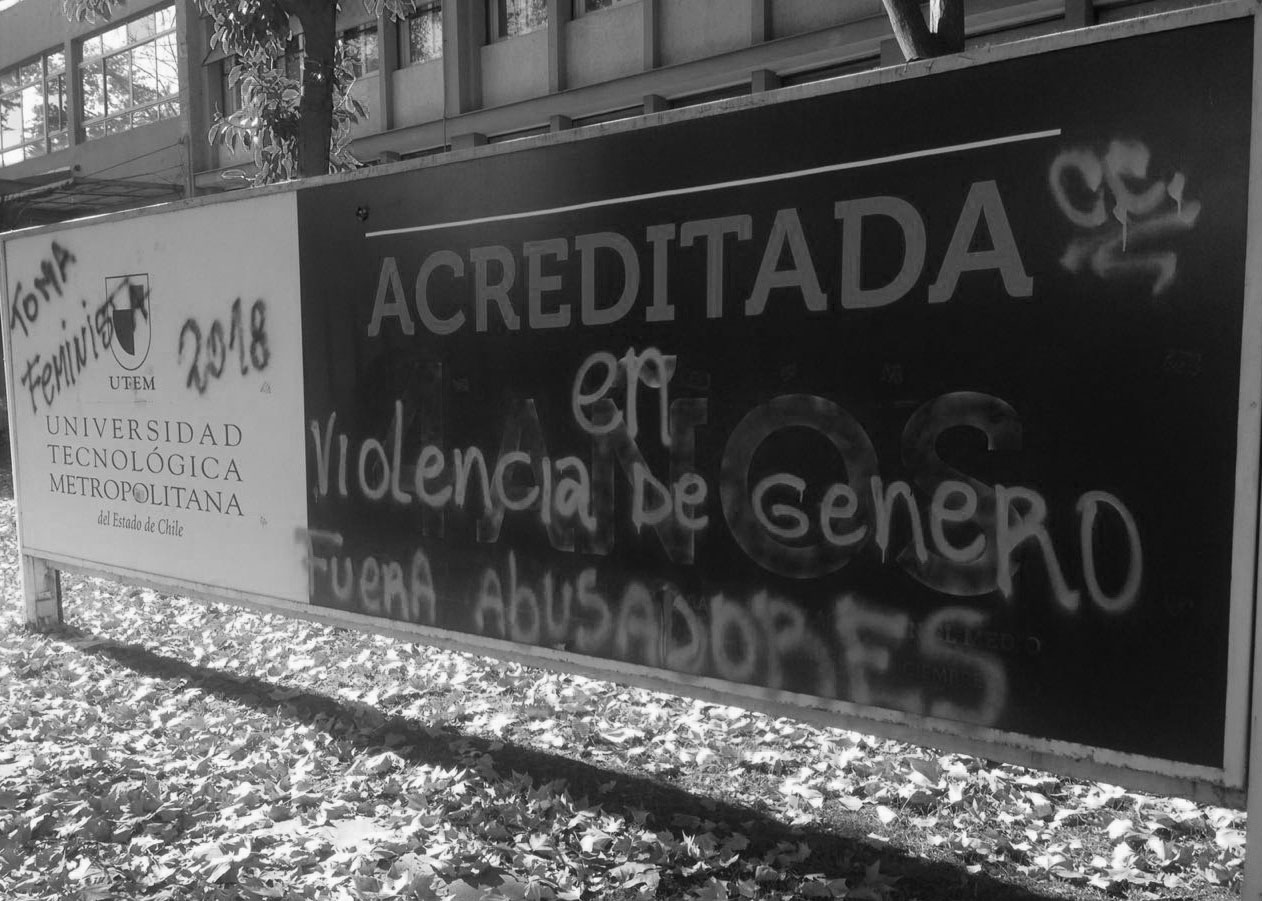 TOMA
Feminista
2018
UTEM
UNIVERSIDAD
TECNOLÓGICA
METROPOLITANA
del Estado de Chile
ACREDITADA
en
AÑOS
Violencia De GeneRO
FuerA AbuSADORES